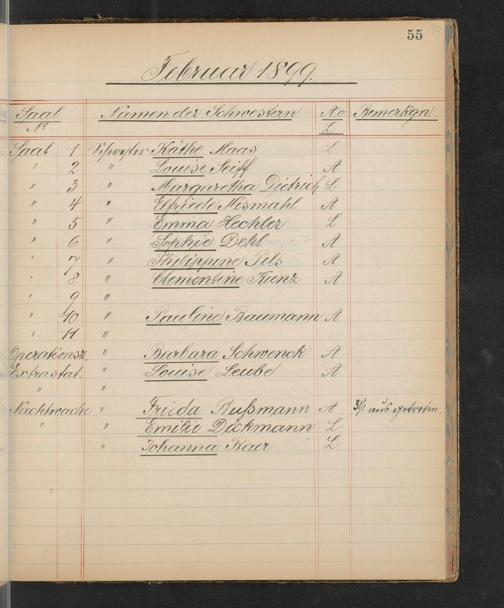 55
Februar 1899.
Saal Namen der Schwestern A o. Bemerkgn.
No L.
Saal 1 Schwester Käthe Maas L
" 2 " Louise Neiff A
" 3 " Margaretha Dietrich L
" 4 " Elfriede Mismahl A
" 5 " Emma Hechler L
" 6 " Sophie Dehl A
" 7 " Philippine Pils A
" 8 " Clementine Kunz A
" 9 "
" 10 " Pauline Baumann A
" 11 "
Operationsz. " Barbara Schwenck A
Extrastat. " Louise Leube A
" "
Nachtwache " Frieda Bußmann A 3/1 ausgetreten.
" " Emilie Dickmann L
" Johanna Kaer L